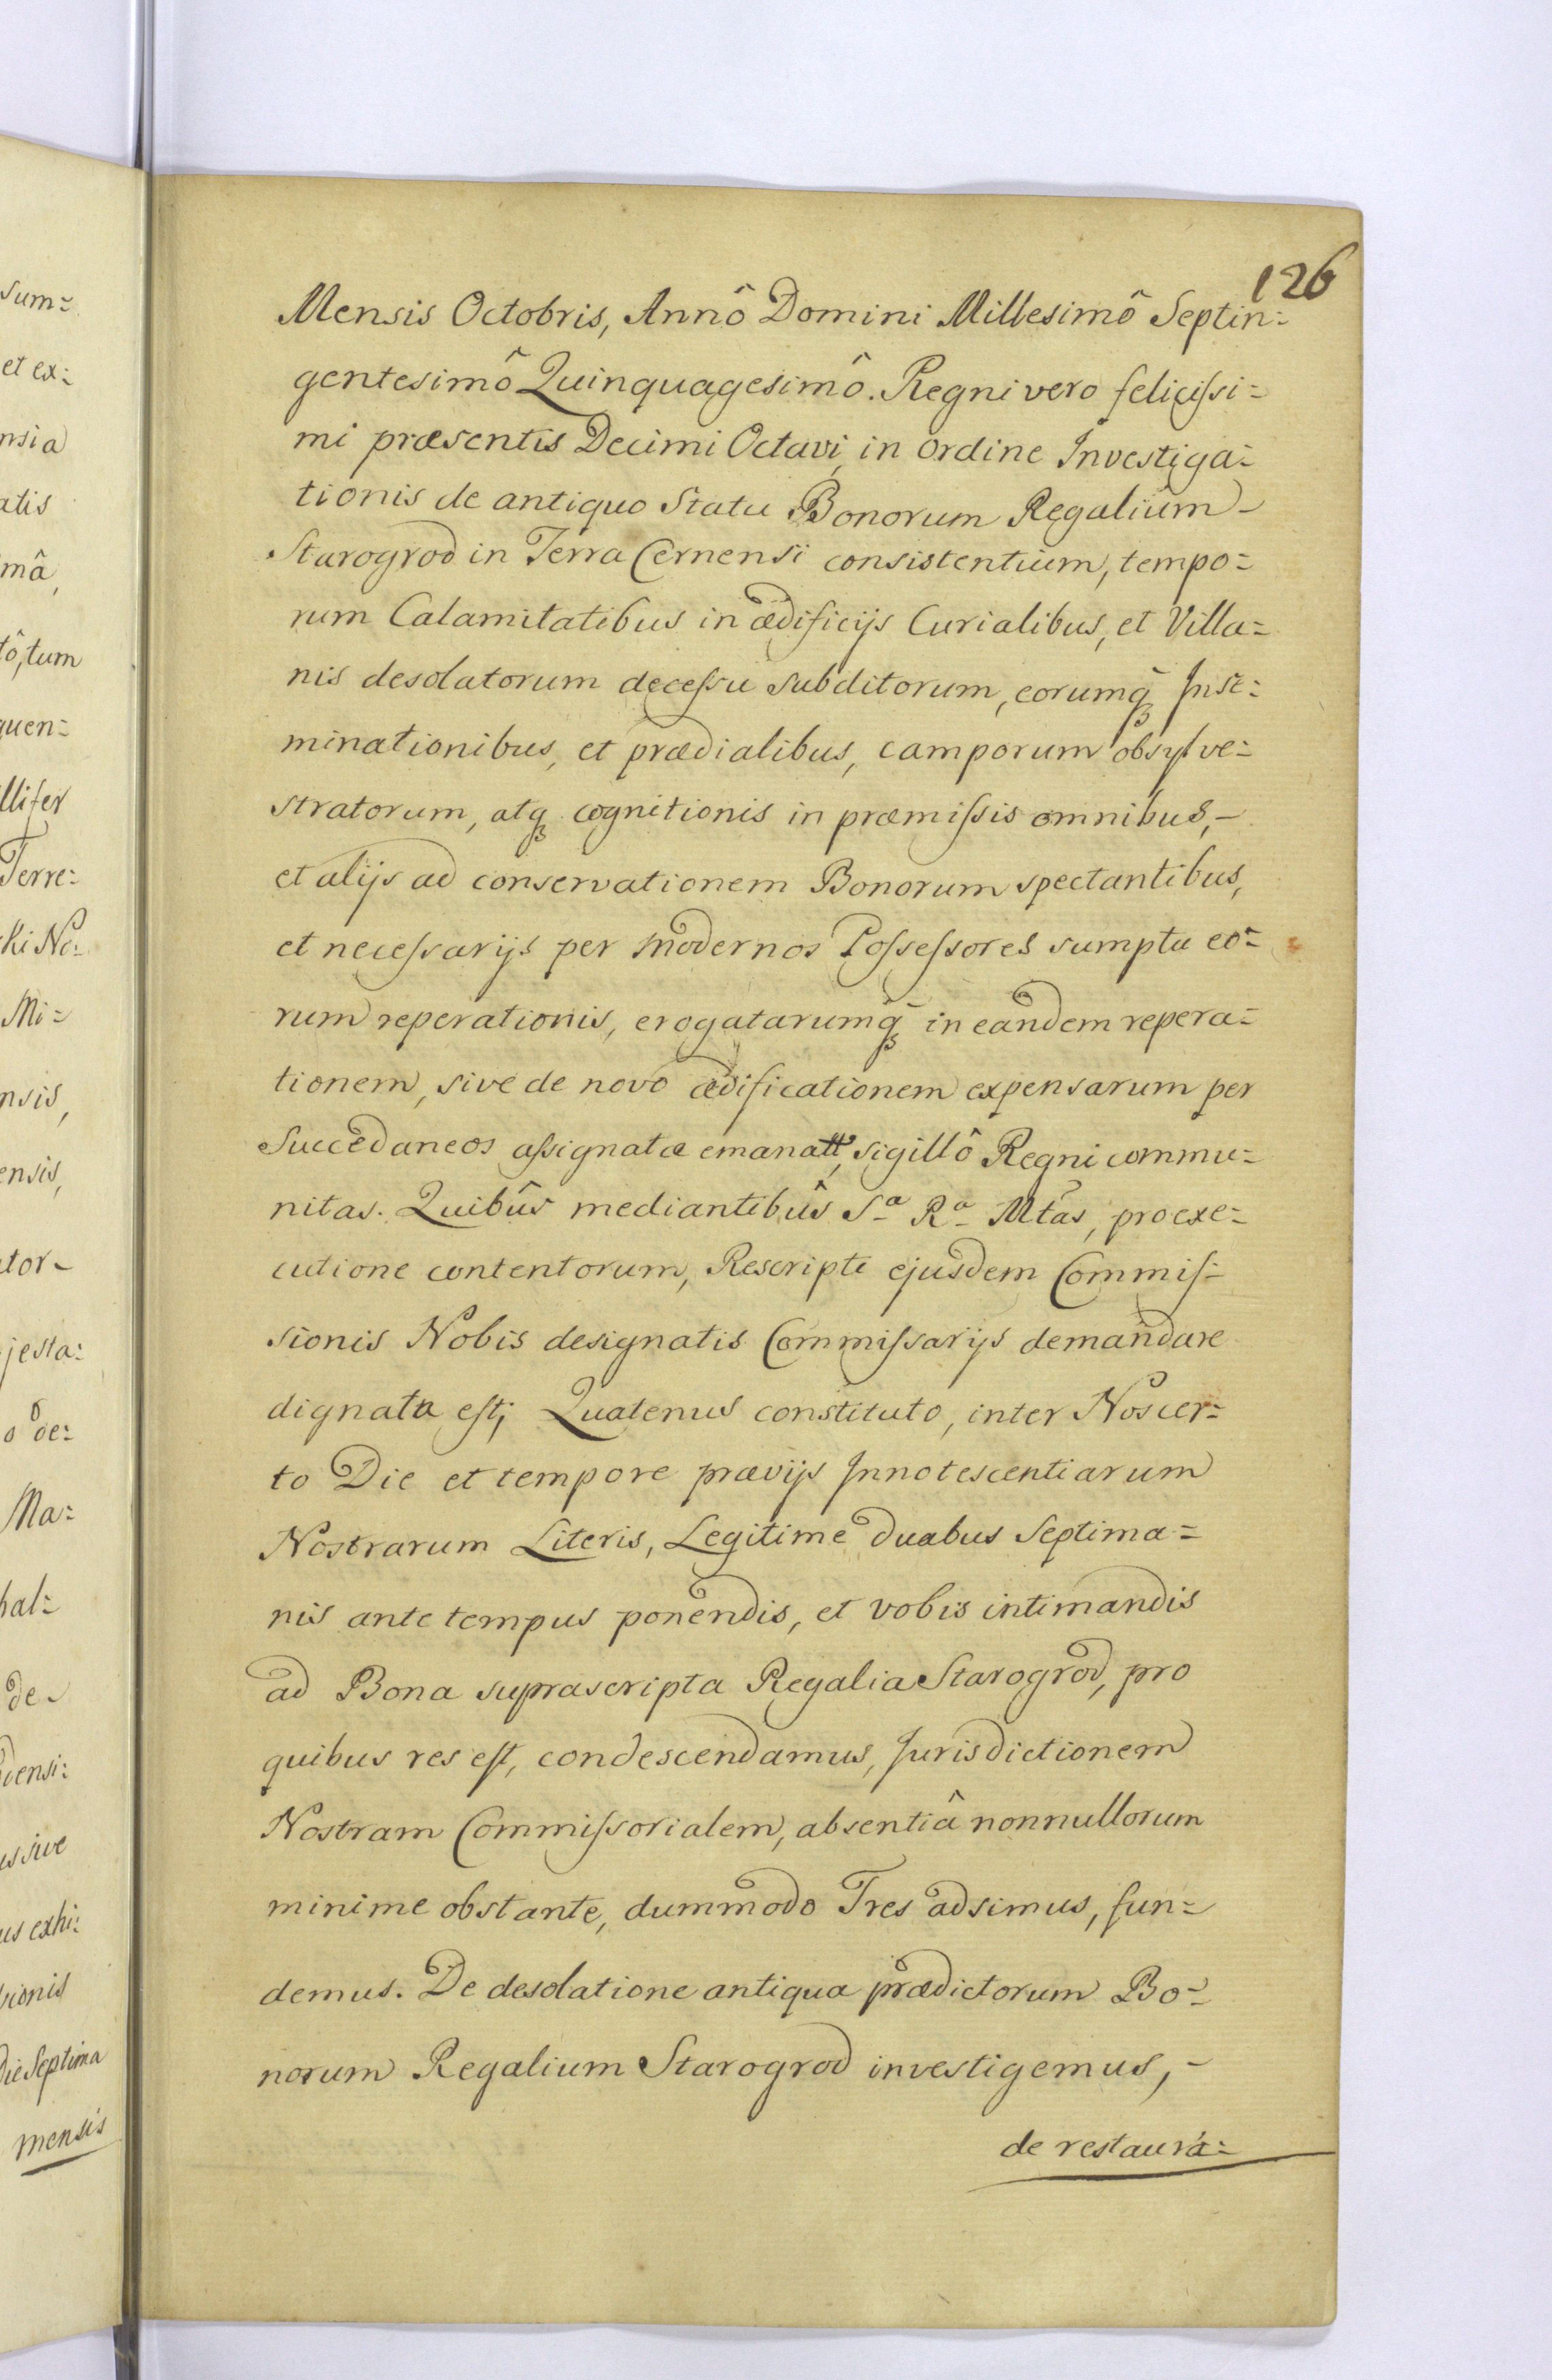 126
Mensis Octobris, Annô Domini Millesimô Septin=
gentesimô Quinquagesimô. Regni vero felicissi=
mi præsentis Decimi Octavi, in ordine Investiga=
tionis de antiquo Statu Bonorum Regalium -
Starogrod in Terra Cernensi consistentium, tempo=
rum Calamitatibus in ædificijs Curialibus, et Villa=
nis desolatorum decessu subditorum, eorumq̃ Inse=
minationibus, et prædialibus, camporum obsylve=
stratorum, atq cognitionis in præmissis omnibus, -
et alijs ad conservationem Bonorum spectantibus,
et necessarijs per modernos Possessores sumptu eo=
rum reperationis, erogatarumq̃ in eandem repera=
tionem, sive de novo ædificationem expensarum per
Succedaneos assignatæ emanatt, sigillô Regni commu=
nitas. Quibûs mediantibûs Sa Ra Mtas, pro exe=
cutione contentorum, Rescripti ejusdem Commis=
sionis Nobis designatis Commissarijs demandare
dignata est; Quatenus constituto, inter Nos cer=
to Die et tempore prævijs Innotescentiarum
Nostrarum Literis, Legitime duabus Septima=
nis ante tempus ponendis, et vobis intimandis
ad Bona suprascripta Regalia Starogrod, pro
quibus res est, condescendamus, Jurisdictionem
Nostram Commissorialem, absentiâ nonnullorum
minime obstante, dummodo Tres adsimus, fun=
demus. De desolatione antiqua prædictorum Bo=
norum Regalium Starogrod investigemus, -
de restaura=
sum=
et ex=
nsia
atis
mâ,
tô, tum
quen=
llifer
Terre=
ki No=
Mi=
nsis,
ensis,
ator-
jesta=
o de=
Ma=
hal=
de-
densi=
us sive
us exhi=
sionis
die Septima
mensis